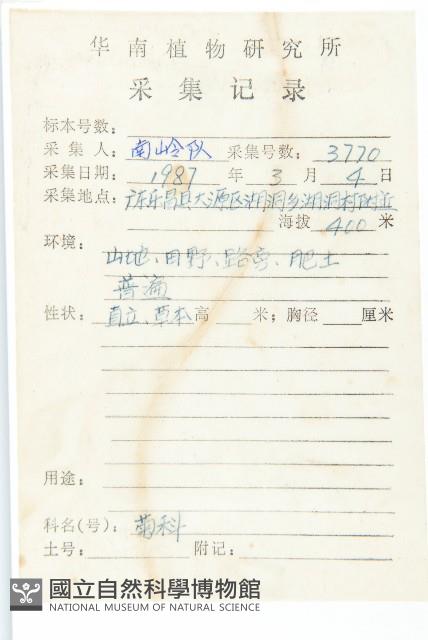 华南植物研究所
采集记录
标本号数：
采集人：南岭队 采集号数：3770
采集日期：1987年3月4日
采集地点：广东乐昌县大源区湖洞乡湖洞村附近
海拔400米
环境：山地、田野、路旁、肥土
普遍
性状：直立、草本高 米；胸径 厘米
用途：
科名(号)：菊科
土号： 附记：
國立自然科學博物館
NATIONAL MUSEUM OF NATURAL SCIENCE